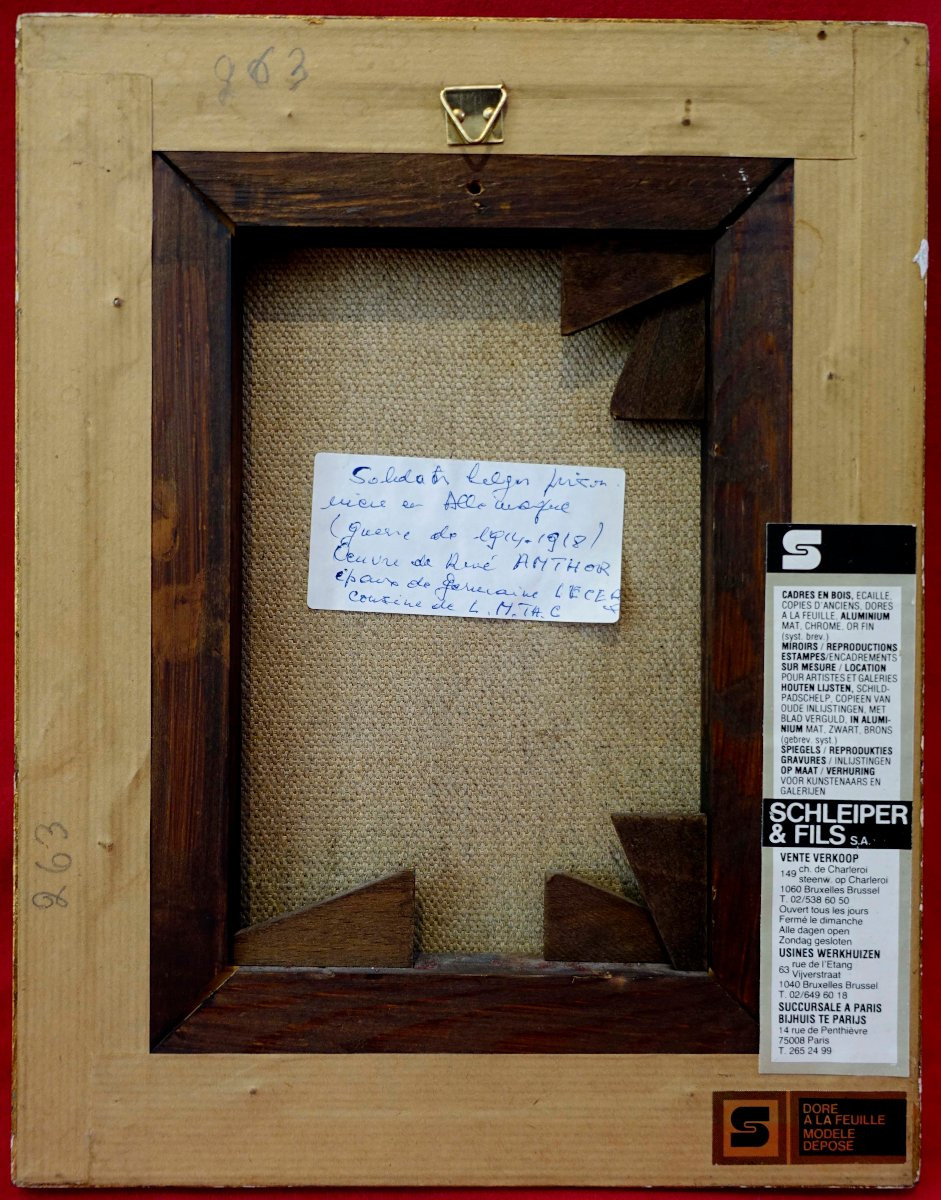 863
Soldats belges prison
niers en Allemagne
(guerre de 1914-1918)
Oeuvre de René AMTHOR
époux de Germaine
cousine de L.M.TH.C
863
S
CADRES EN BOIS, ECAILLE,
COPIES D'ANCIENS, DORES
A LA FEUILLE, ALUMINIUM
MAT, CHROME, OR FIN
(syst. brev.)
MIROIRS / REPRODUCTIONS
ESTAMPES/ENCADREMENTS
SUR MESURE / LOCATION
POUR ARTISTES ET GALERIES
HOUTEN LIJSTEN, SCHILD-
PADSCHELP, COPIEEN VAN
OUDE INLIJSTINGEN, MET
BLAD VERGULD, IN ALUMI-
NIUM MAT, ZWART, BRONS
(gebrev. syst.)
SPIEGELS / REPRODUKTIES
GRAVURES / INLIJSTINGEN
OP MAAT / VERHURING
VOOR KUNSTENAARS EN
GALERIJEN
SCHLEIPER
& FILS S.A.
VENTE VERKOOP
149 ch. de Charleroi
steenw. op Charleroi
1060 Bruxelles Brussel
T. 02/538 60 50
Ouvert tous les jours
Fermé le dimanche
Alle dagen open
Zondag gesloten
USINES WERKHUIZEN
63 rue de l'Etang
Vijverstraat
1040 Bruxelles Brussel
T. 02/649 60 18
SUCCURSALE A PARIS
BIJHUIS TE PARIJS
14 rue de Penthièvre
75008 Paris
T. 265 24 99
S
DORE
A LA FEUILLE
MODELE
DEPOSE